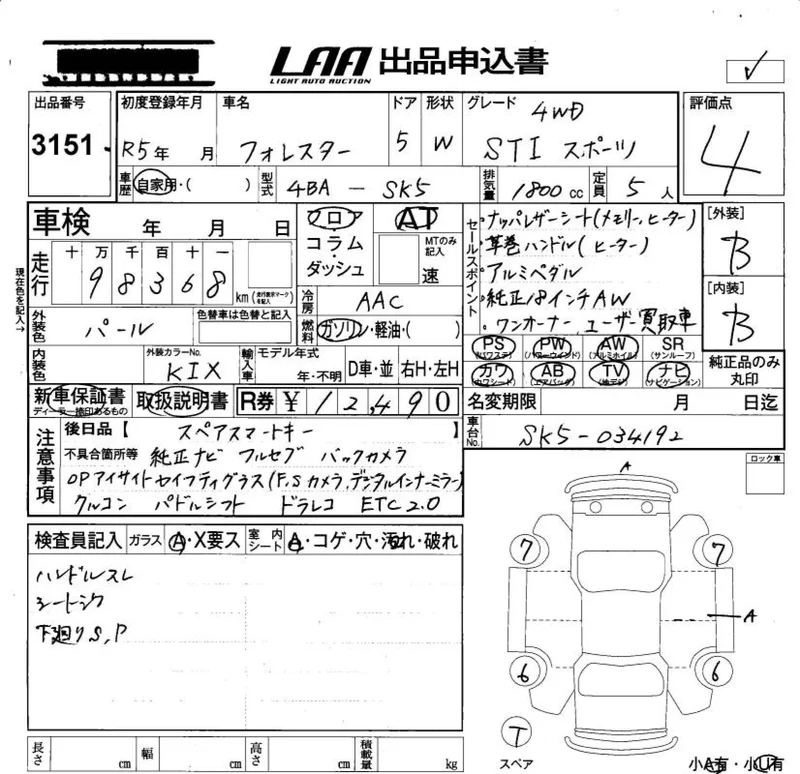 LAA 出品申込書
LIGHT AUTO AUCTION
出品番号 初度登録年月 車名 ドア 形状 グレード 4WD 評価点
3151 R5年 月 フォレスター 5 W STI スポーツ 4
車歴 自家用・( ) 型式 4BA - SK5 排気量 1800cc 定員 5人
車検 年 月 日 フロア AT セールスポイント ナッパレザーシート(メモリー,ヒーター) [外装]
コラム・ MTのみ記入 革巻ハンドル(ヒーター) B
走行 十 万 千 百 十 一 ダッシュ 速 アルミペダル
98368 km (走行表示マークを記入) 冷房 AAC 純正18インチAW [内装]
現在色を記入→
外装色 パール 色替車は色替と記入 燃料 ガソリン・軽油・( ) ワンオーナー,ユーザー買取車 B
PS (パワステ) PW (パワーウインド) AW (アルミホイル) SR (サンルーフ)
内装色 外装カラーNo. KIX 輸入車 モデル年式 年・不明 D車・並 右H・左H カワ (カワシート) AB (エアバッグ) TV (地デジ) ナビ (ナビゲーション) 純正品のみ丸印
新車保証書 ディーラー捺印あるもの 取扱説明書 R券 ¥ 12,490 名変期限 月 日迄
注意事項 後日品【 スペアスマートキー 】 車台No. SK5-034192
不具合箇所等 純正ナビ フルセグ バックカメラ ロック車
OPアイサイトセイフティプラス(F,Sカメラ,デジタルインナーミラー)
クルコン パドルシフト ドラレコ ETC2.0
A
検査員記入 ガラス A・X要ス 室内シート A・コゲ・穴・汚れ・破れ
7 7
ハンドルスレ
シートシワ
A
下廻りS,P
6 6
T
スペア
長さ cm 幅 cm 高さ cm 積載量 kg 小A有・小U有